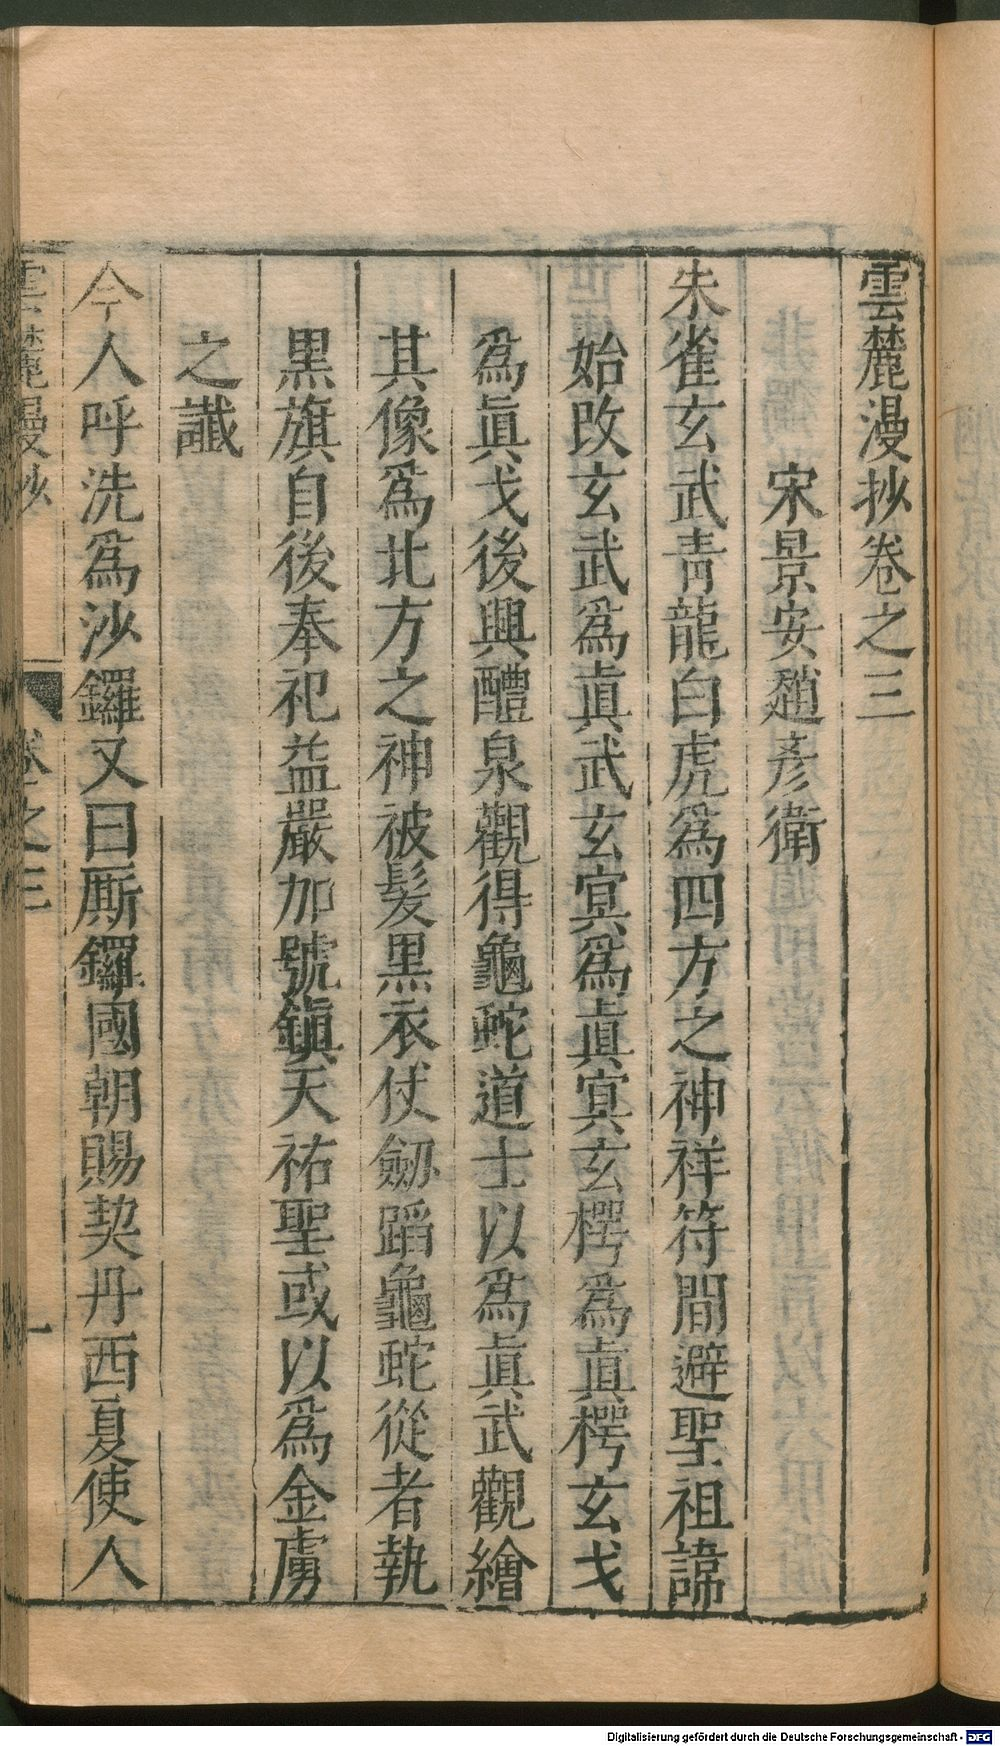 雲麓漫抄卷之三
宋景安趙彥衛
朱雀玄武青龍白虎爲四方之神祥符間避聖祖諱
始改玄武爲眞武玄冥爲眞冥玄枵爲眞枵玄戈
爲眞戈後興醴泉觀得龜蛇道士以爲眞武觀繪
其像爲北方之神被髮黑衣仗劒蹈龜蛇從者執
黑旗自後奉祀益嚴加號鎭天祐聖或以爲金虜
之讖
今人呼洗爲沙鑼又曰厮鑼國朝賜契丹西夏使人
雲麓漫抄
卷之三
一
Digitalisierung gefördert durch die Deutsche Forschungsgemeinschaft - DFG